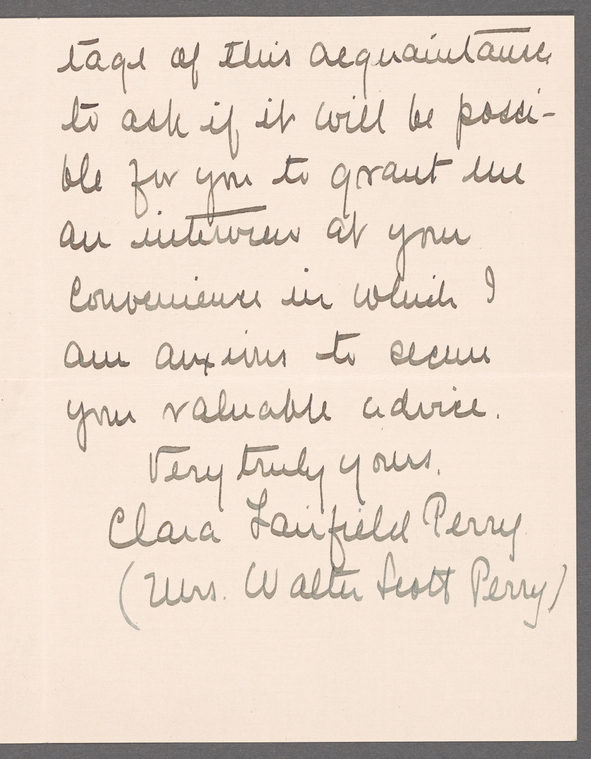 tage of this acquaintance
to ask if it will be possi-
ble for you to grant me
an interview at your
convenience in which I
am anxious to secure
your valuable advice.
Very truly yours.
Clara Fairfield Perry
(Mrs. Walter Scott Perry)